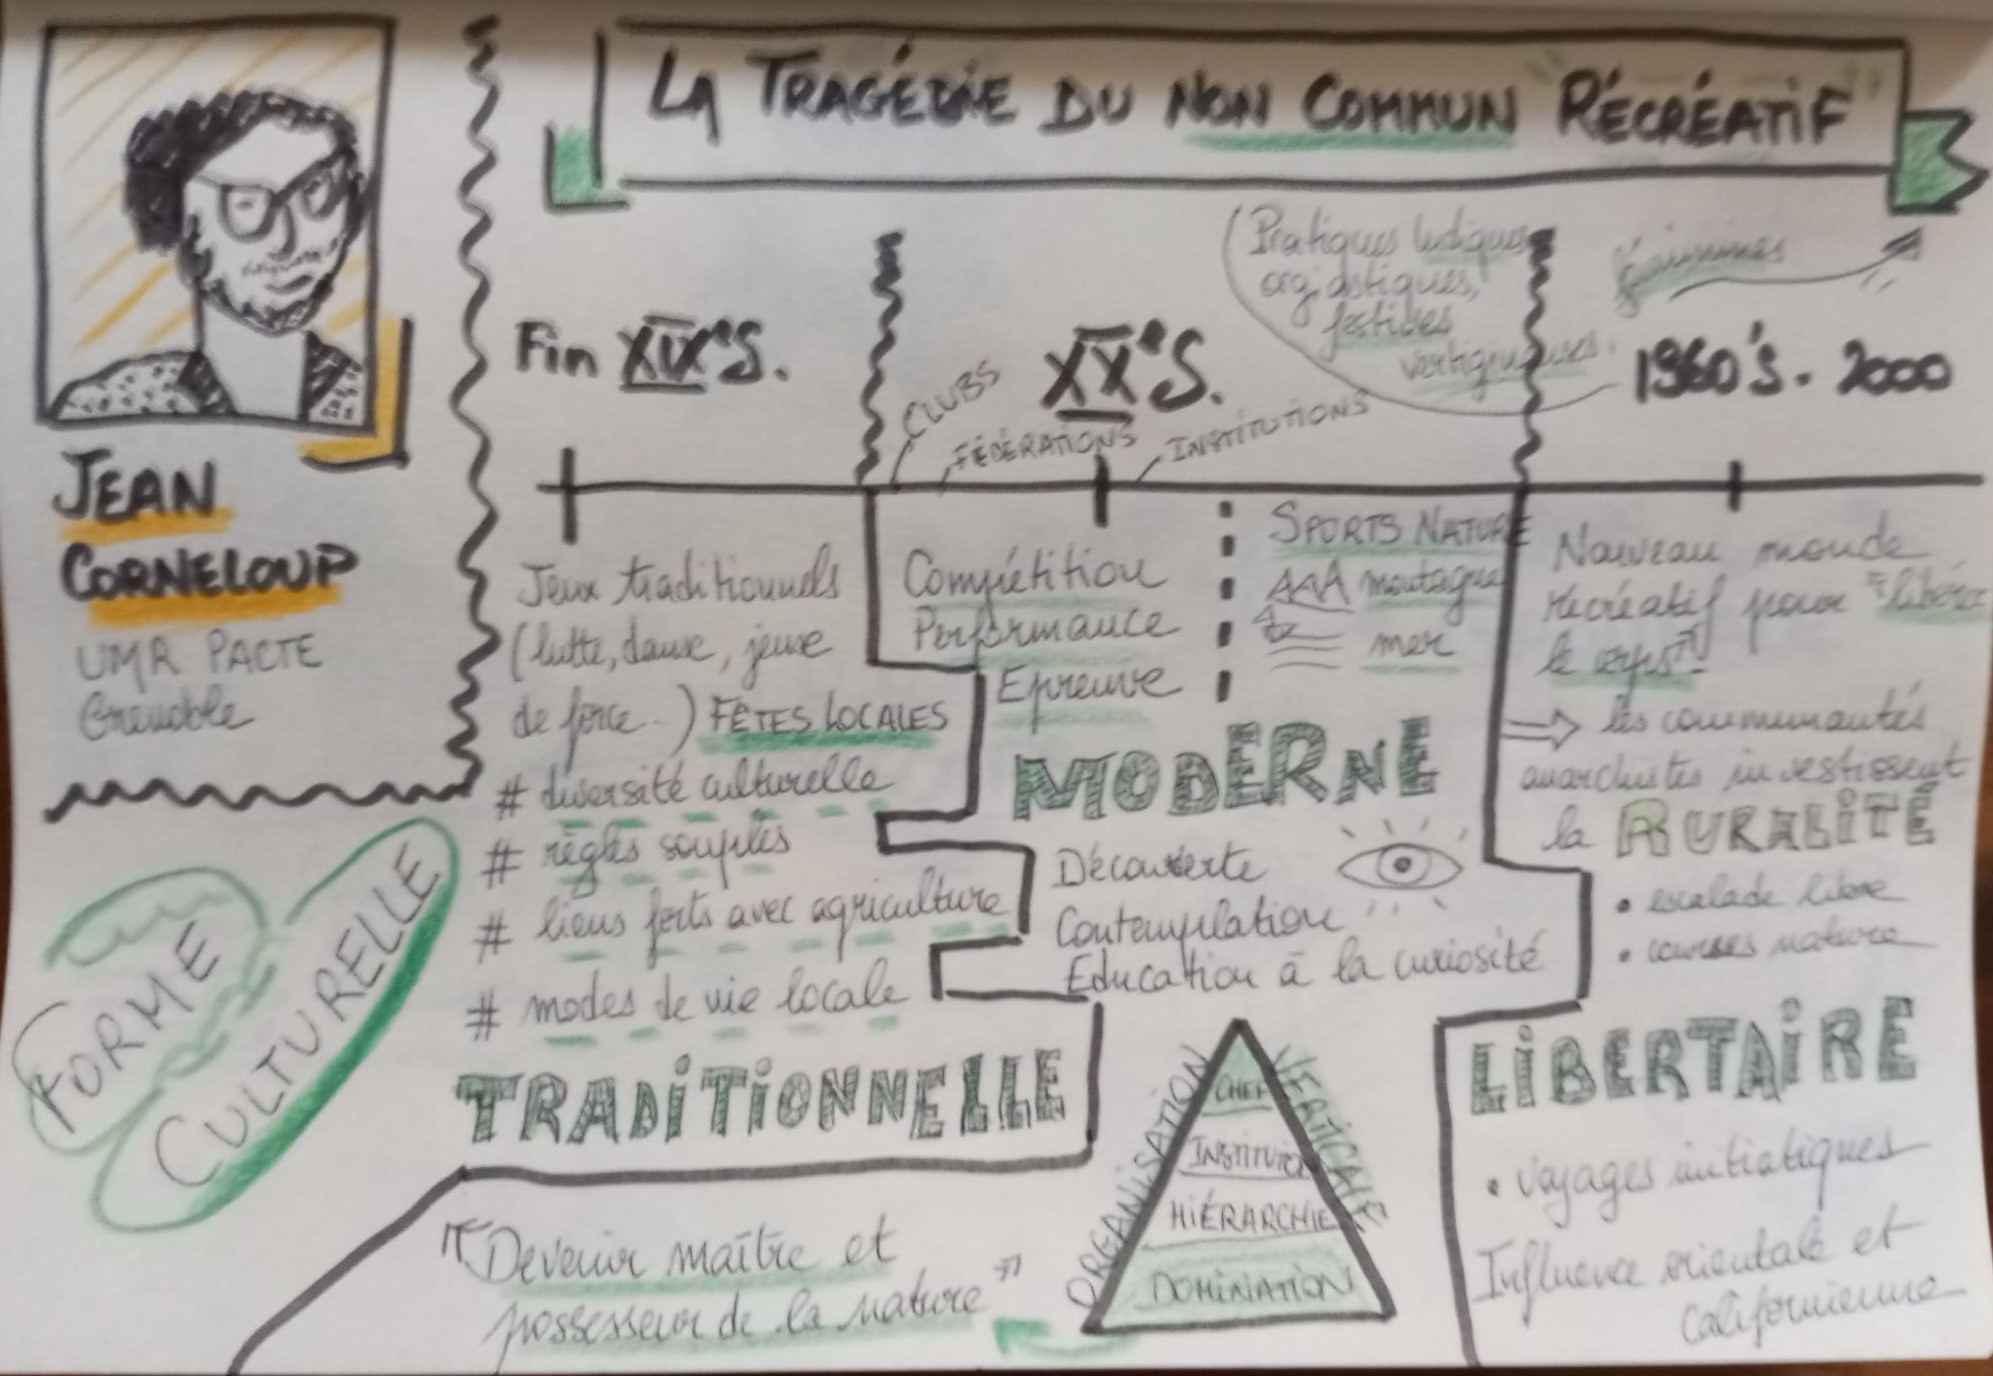 LA TRAGÉDIE DU NON COMMUN RÉCRÉATIF
JEAN
CORNELOUP
UMR PACTE
Grenoble
FORME
CULTURELLE
Fin XIXe S.
Jeux traditionnels
(lutte, danse, jeux
de force...) FÊTES LOCALES
# diversité culturelle
# règles souples
# liens forts avec agriculture
# modes de vie locale
TRADITIONNELLE
XXe S.
CLUBS
FÉDÉRATIONS
INSTITUTIONS
(Pratiques ludiques,
orgiastiques,
festives
vertigineuses.
Compétition
Performance
Epreuve
SPORTS NATURE
montagne
mer
MODERNE
Découverte
Contemplation
Education à la curiosité
ORGANISATION
VERTICALE
CHEF
INSTITUTION
HIÉRARCHIE
DOMINATION
"Devenir maître et
possesseur de la nature"
féminines
1960's - 2000
Nouveau monde
récréatif pour "libérer
le corps"
⇒ les communautés
anarchistes investissent
la RURALITÉ
• escalade libre
• courses nature
LIBERTAIRE
• voyages initiatiques
Influence orientale et
Californienne